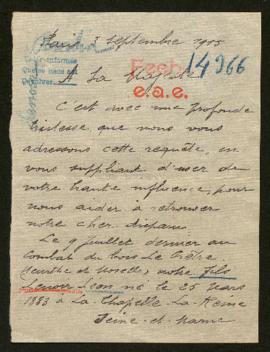 Septembre 1915
14966
e.a.e.
A La Chapelle
C'est avec une profonde
tristesse que nous vous
adressons cette requête, en
vous suppliant d'user de
votre haute influence, pour
nous aider à retrouver
notre cher disparu.
Le 9 juillet dernier au
Combat du bois Le Prêtre
(Meurthe et Moselle) notre fils
Lenoir Léon né le 25 mars
1883 à La Chapelle La Reine
Seine-et-Marne